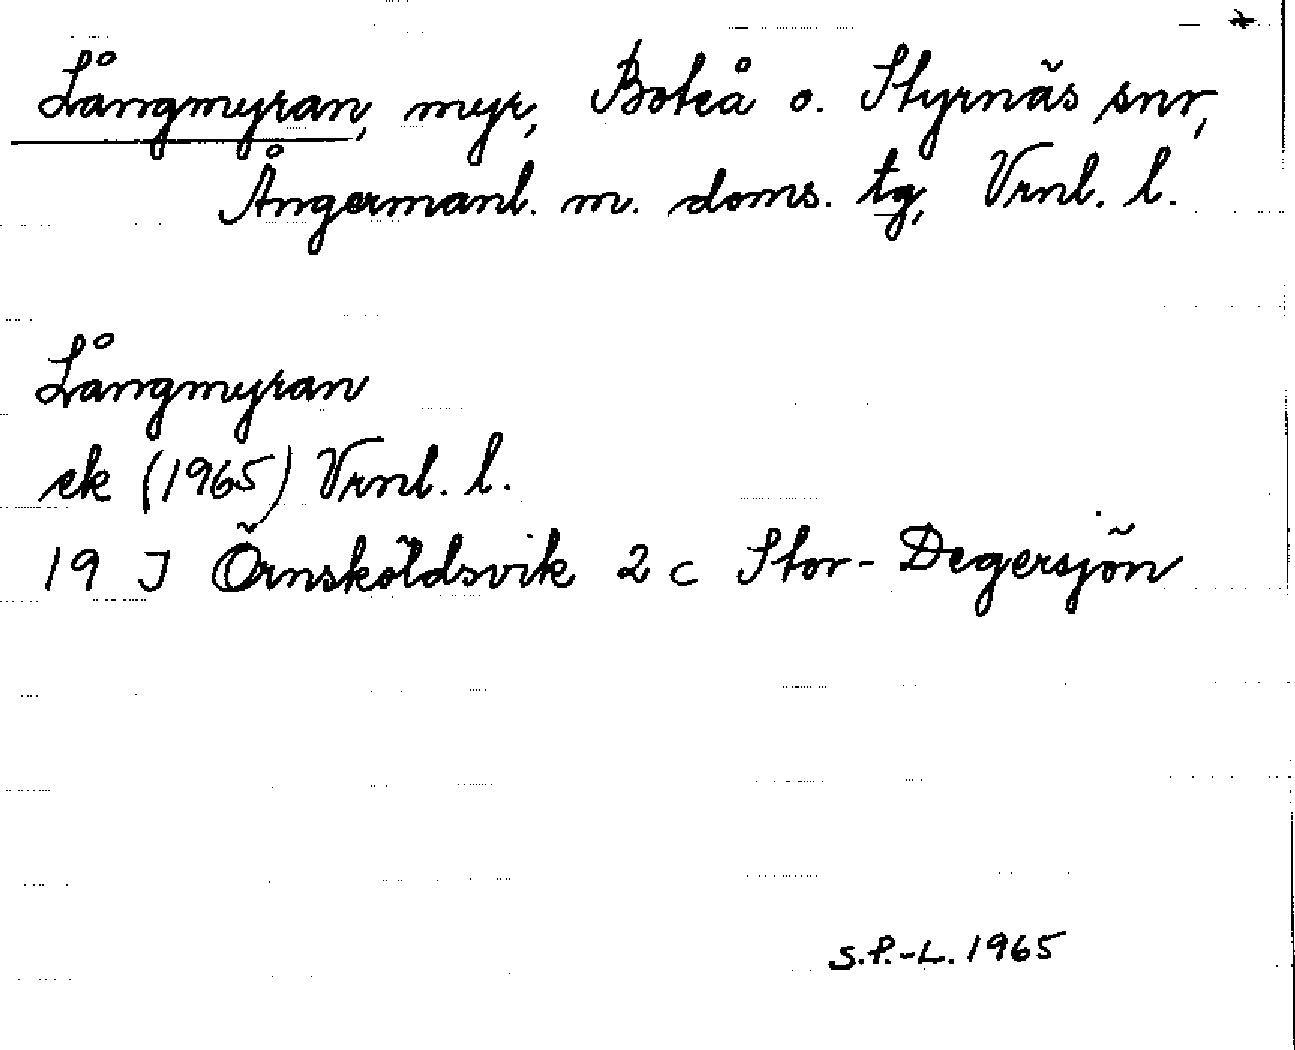 Långmyran, myr, Boteå o. Styrnäs snr,
Ångermanl. m. doms. tg, Vrnl. l.
Långmyran
ek (1965) Vrnl. l.
19 J Örnsköldsvik 2 c Stor-Degersjön
S.P.-L. 1965